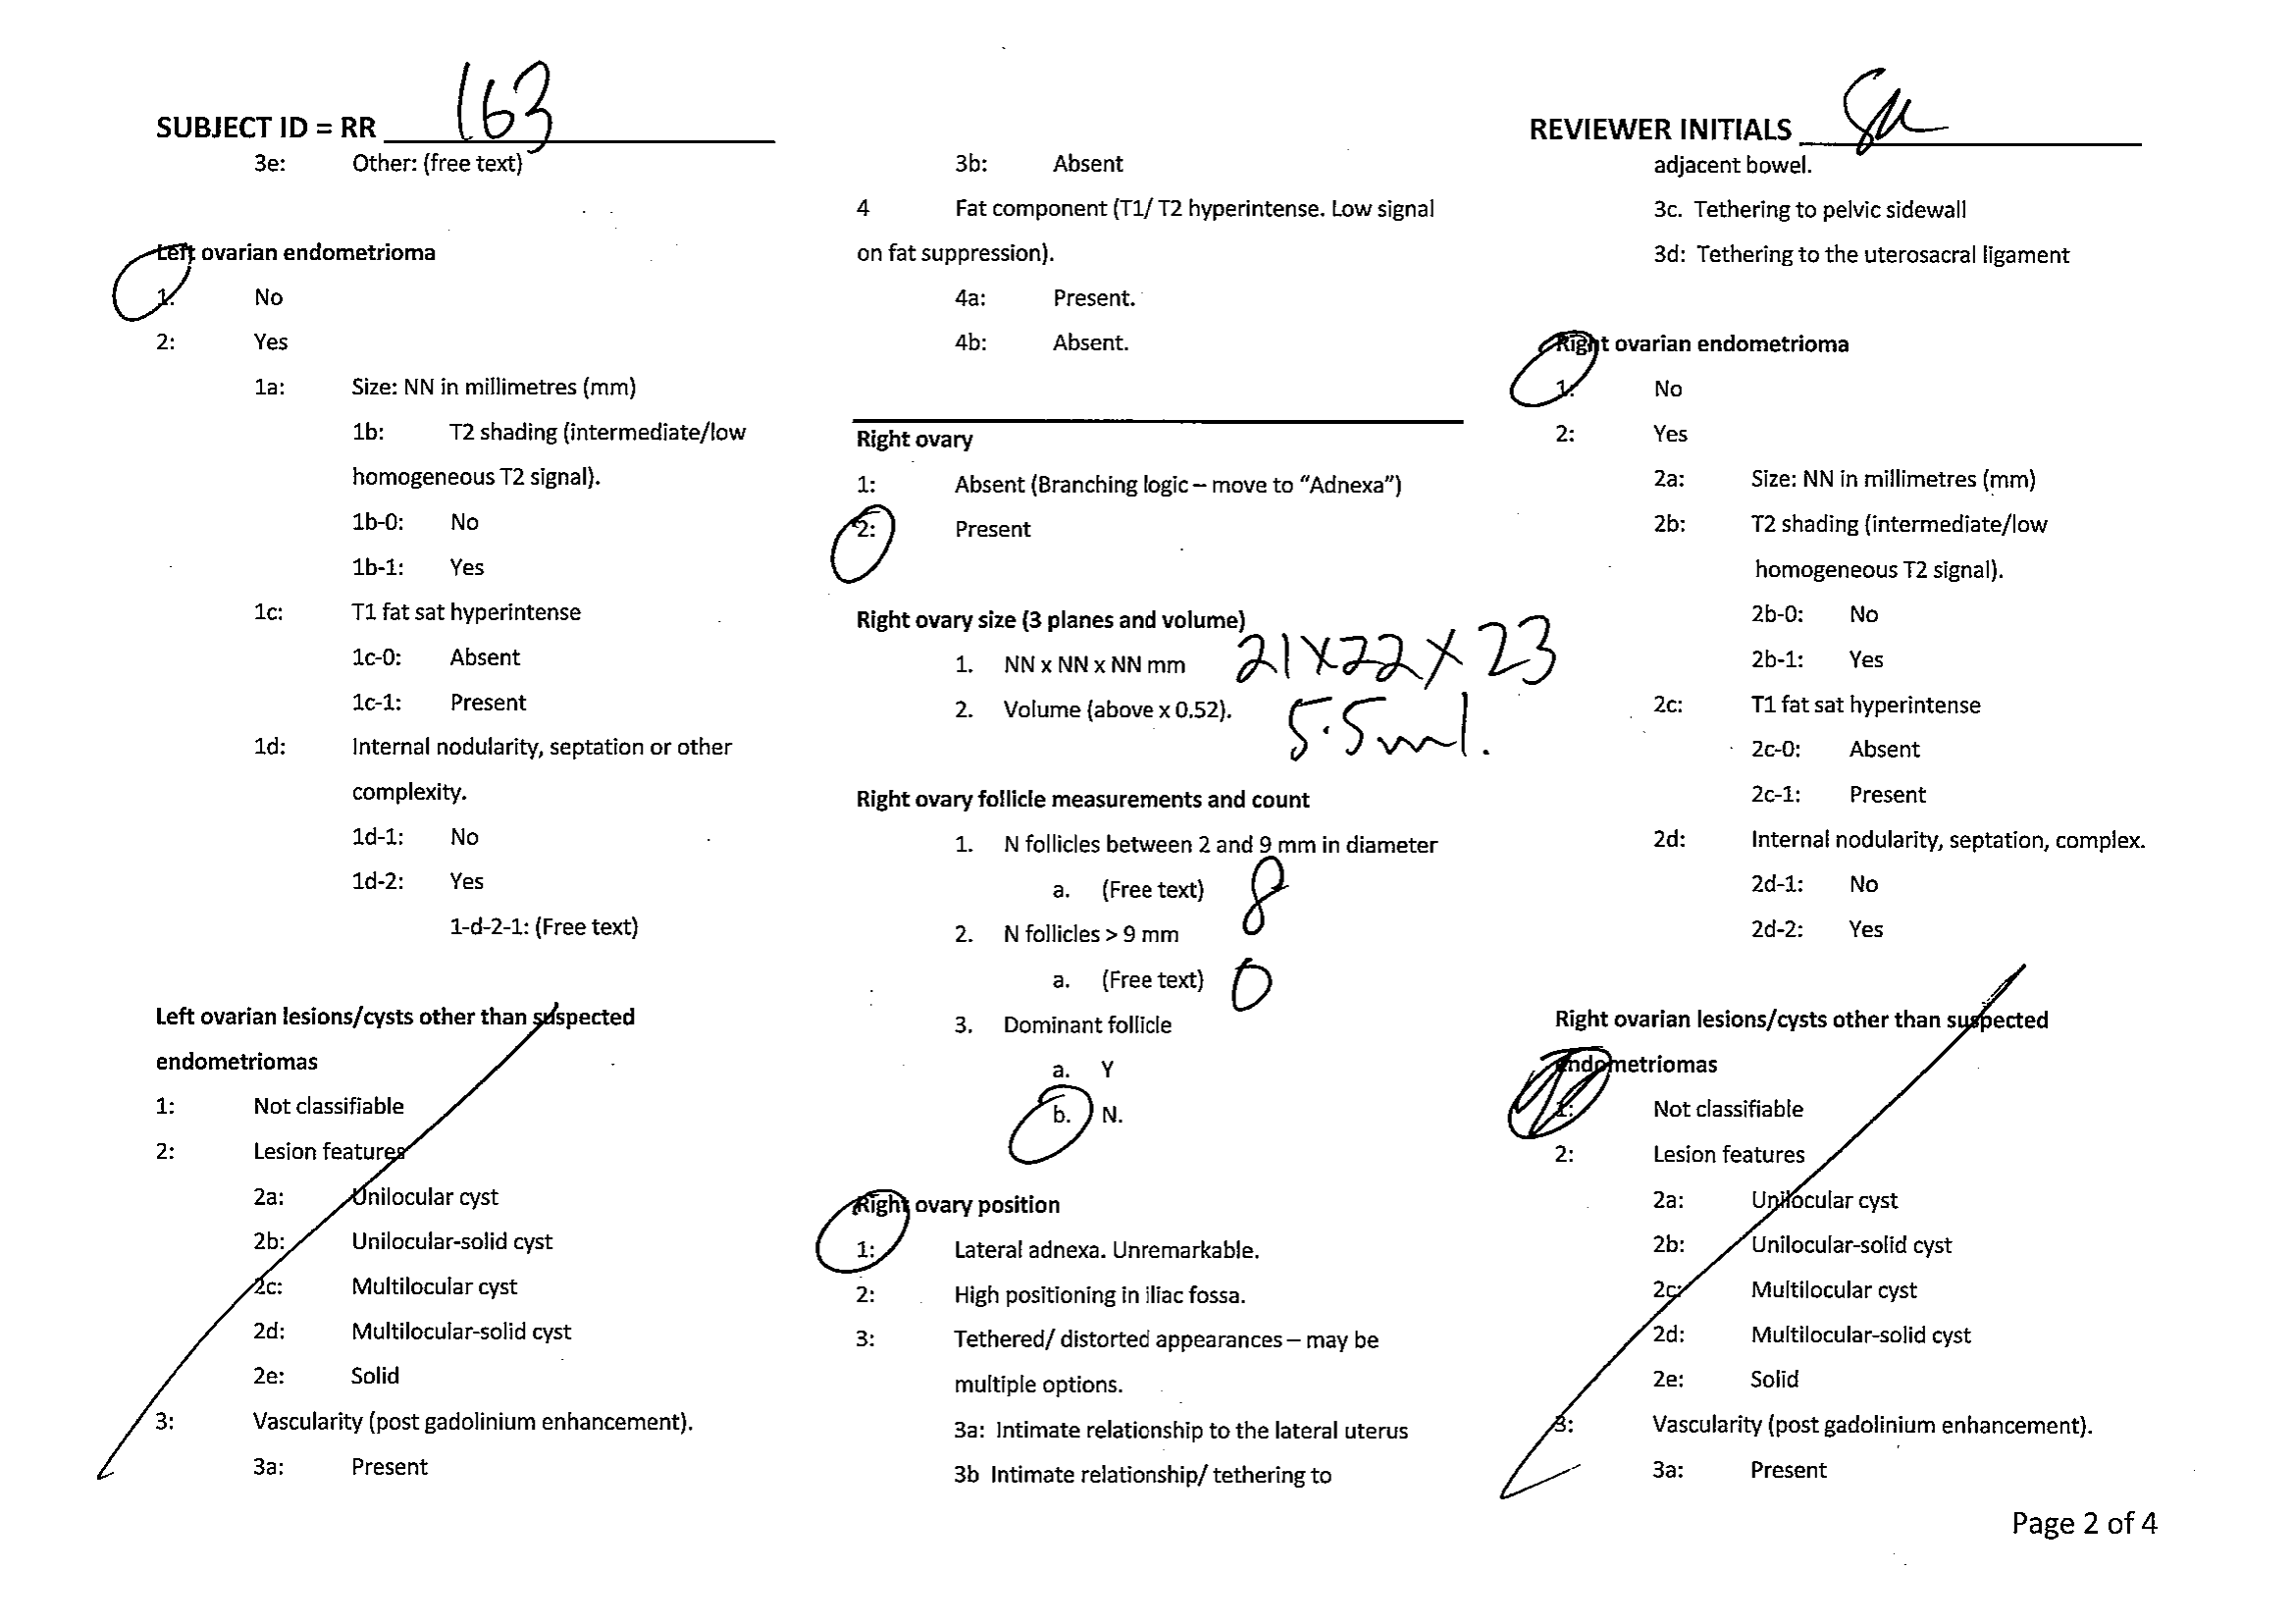 SUBJECT ID = RR 163
REVIEWER INITIALS
3e: Other: (free text)
Left ovarian endometrioma
1: No
2: Yes
1a: Size: NN in millimetres (mm)
1b: T2 shading (intermediate/low
homogeneous T2 signal).
1b-0: No
1b-1: Yes
1c: T1 fat sat hyperintense
1c-0: Absent
1c-1: Present
1d: Internal nodularity, septation or other
complexity.
1d-1: No
1d-2: Yes
1-d-2-1: (Free text)
Left ovarian lesions/cysts other than suspected
endometriomas
1: Not classifiable
2: Lesion features
2a: Unilocular cyst
2b: Unilocular-solid cyst
2c: Multilocular cyst
2d: Multilocular-solid cyst
2e: Solid
3: Vascularity (post gadolinium enhancement).
3a: Present
3b: Absent
4 Fat component (T1/ T2 hyperintense. Low signal
on fat suppression).
4a: Present.
4b: Absent.
Right ovary
1: Absent (Branching logic – move to “Adnexa”)
2: Present
Right ovary size (3 planes and volume)
1. NN x NN x NN mm 21X22X23
2. Volume (above x 0.52). 5.5ml.
Right ovary follicle measurements and count
1. N follicles between 2 and 9 mm in diameter
a. (Free text) 8
2. N follicles > 9 mm
a. (Free text) 0
3. Dominant follicle
a. Y
b. N.
Right ovary position
1: Lateral adnexa. Unremarkable.
2: High positioning in iliac fossa.
3: Tethered/ distorted appearances – may be
multiple options.
3a: Intimate relationship to the lateral uterus
3b Intimate relationship/ tethering to
adjacent bowel.
3c. Tethering to pelvic sidewall
3d: Tethering to the uterosacral ligament
Right ovarian endometrioma
1: No
2: Yes
2a: Size: NN in millimetres (mm)
2b: T2 shading (intermediate/low
homogeneous T2 signal).
2b-0: No
2b-1: Yes
2c: T1 fat sat hyperintense
2c-0: Absent
2c-1: Present
2d: Internal nodularity, septation, complex.
2d-1: No
2d-2: Yes
Right ovarian lesions/cysts other than suspected
endometriomas
1: Not classifiable
2: Lesion features
2a: Unilocular cyst
2b: Unilocular-solid cyst
2c: Multilocular cyst
2d: Multilocular-solid cyst
2e: Solid
3: Vascularity (post gadolinium enhancement).
3a: Present
Page 2 of 4